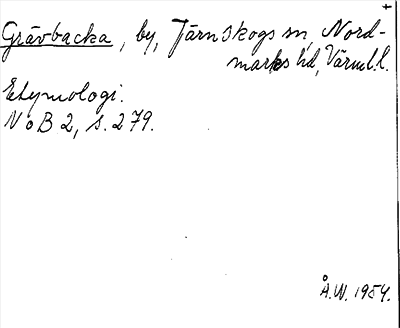 Grävbacka, by, Järnskogs sn, Nord-
marks hd, Värml.l.
Etymologi.
NoB 2, s. 279.
Å.W. 1954.